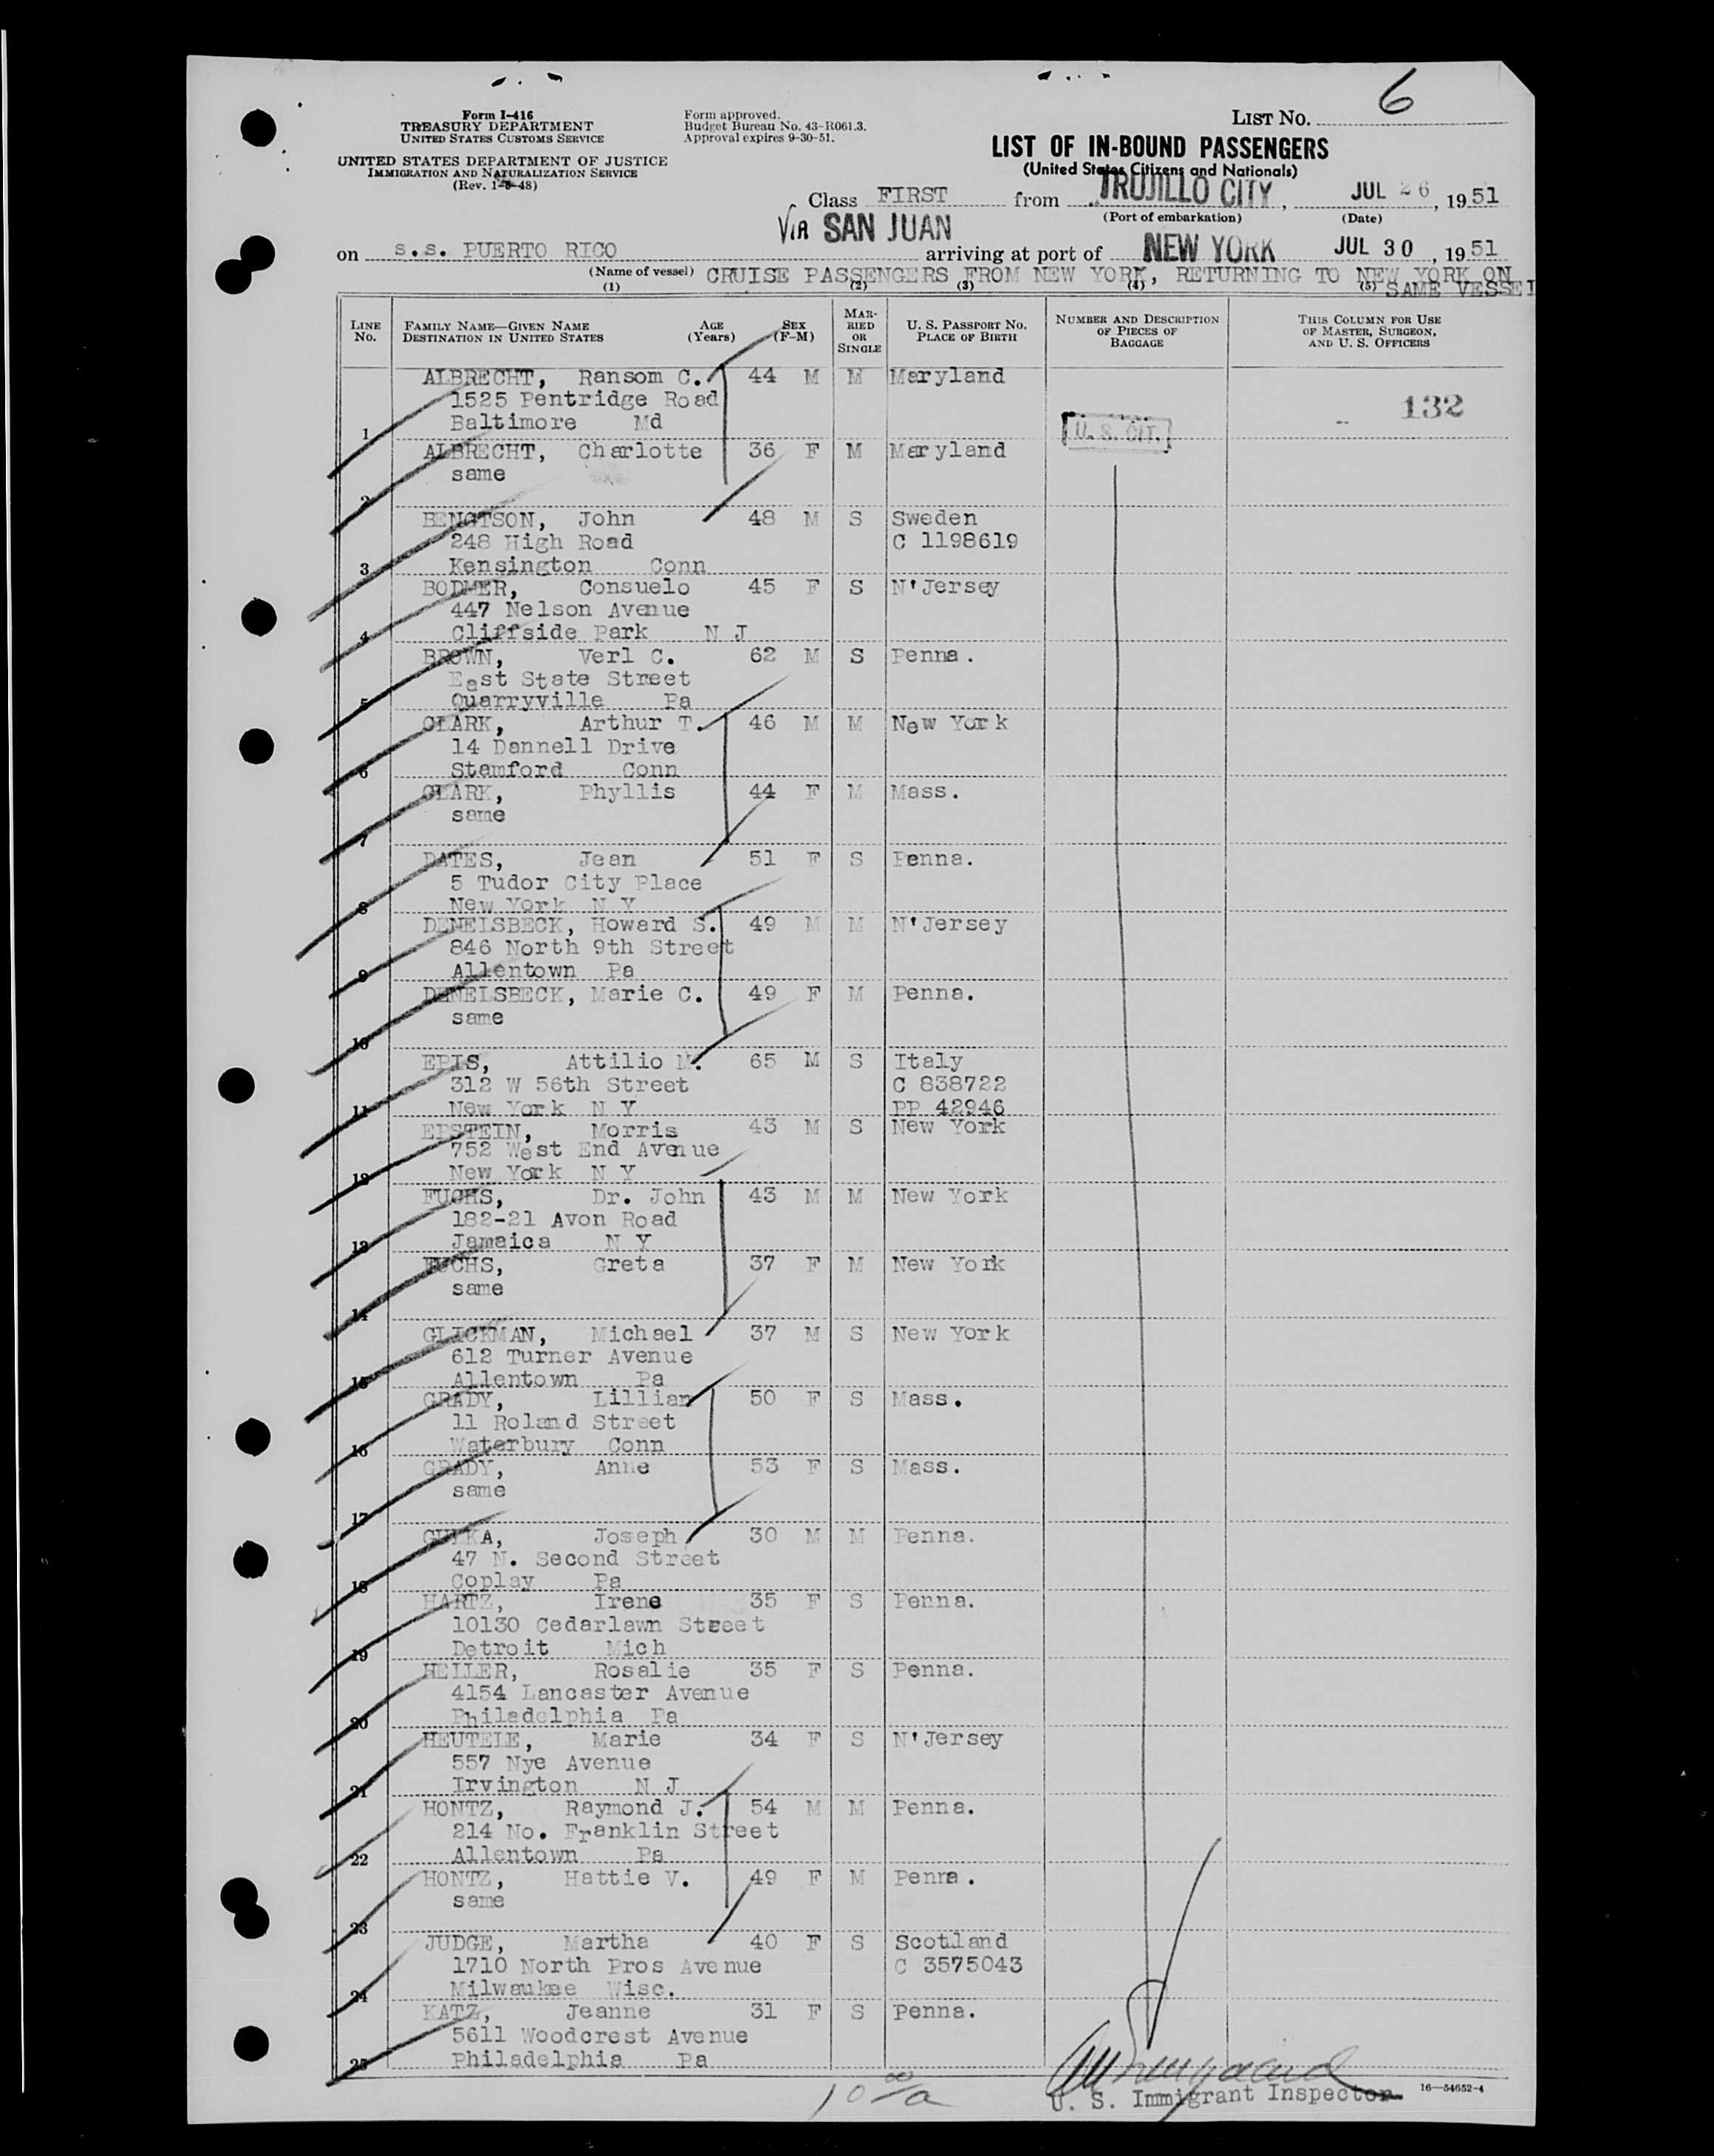 6
LIST NO.
Form I-416
TREASURY DEPARTMENT
UNITED STATES CUSTOMS SERVICE
UNITED STATES DEPARTMENT OF JUSTICE
IMMIGRATION AND NATURALIZATION SERVICE
(Rev. 1-5-48)
Form approved.
Budget Bureau No. 43-R061.3.
Approval expires 9-30-51.
LIST OF IN-BOUND PASSENGERS
(United States Citizens and Nationals)
Class FIRST from TRUJILLO CITY, JUL 26, 1951
(Port of embarkation) (Date)
VIA SAN JUAN
on s.s. PUERTO RICO arriving at port of NEW YORK JUL 30, 1951
(Name of vessel) CRUISE PASSENGERS FROM NEW YORK, RETURNING TO NEW YORK ON SAME VESSEL
(1) (2) (3) (4) (5)
LINE No. FAMILY NAME—GIVEN NAME DESTINATION IN UNITED STATES AGE (Years) SEX (F-M) MARRIED OR SINGLE U. S. PASSPORT NO. PLACE OF BIRTH NUMBER AND DESCRIPTION OF PIECES OF BAGGAGE THIS COLUMN FOR USE OF MASTER, SURGEON, AND U. S. OFFICERS
ALBRECHT, Ransom C. 44 M M Maryland
1525 Pentridge Road
132
1 Baltimore Md
U. S. CIT.
ALBRECHT, Charlotte 36 F M Maryland
same
2
BENGTSON, John 48 M S Sweden
248 High Road C 1198619
3 Kensington Conn
BODMER, Consuelo 45 F S N'Jersey
447 Nelson Avenue
4 Cliffside Park N J
BROWN, Verl C. 62 M S Penna.
East State Street
5 Quarryville Pa
CLARK, Arthur T. 46 M M New York
14 Dannell Drive
6 Stamford Conn
CLARK, Phyllis 44 F M Mass.
same
7
DATES, Jean 51 F S Penna.
5 Tudor City Place
8 New York N Y
DENELSBECK, Howard S. 49 M M N'Jersey
846 North 9th Street
9 Allentown Pa
DENELSBECK, Marie C. 49 F M Penna.
same
10
EPIS, Attilio M. 65 M S Italy
312 W 56th Street C 838722
11 New York N Y PP 42946
EPSTEIN, Morris 43 M S New York
752 West End Avenue
12 New York N Y
FUCHS, Dr. John 43 M M New York
182-21 Avon Road
13 Jamaica N Y
FUCHS, Greta 37 F M New York
same
14
GLICKMAN, Michael 37 M S New York
612 Turner Avenue
15 Allentown Pa
GRADY, Lillian 50 F S Mass.
11 Roland Street
16 Waterbury Conn
GRADY, Anne 53 F S Mass.
same
17
Joseph 30 M M Penna.
47 N. Second Street
18 Coplay Pa
HARTZ, Irene 35 F S Penna.
10130 Cedarlawn Street
19 Detroit Mich
HEILER, Rosalie 35 F S Penna.
4154 Lancaster Avenue
20 Philadelphia Pa
HEUTELE, Marie 34 F S N'Jersey
557 Nye Avenue
21 Irvington N J
HONTZ, Raymond J. 54 M M Penna.
214 No. Franklin Street
22 Allentown Pa
HONTZ, Hattie V. 49 F M Penna.
same
23
JUDGE, Martha 40 F S Scotland
1710 North Pros Avenue C 3575043
24 Milwaukee Wisc.
KATZ, Jeanne 31 F S Penna.
5611 Woodcrest Avenue
25 Philadelphia Pa
U. S. Immigrant Inspector
16—54652-4